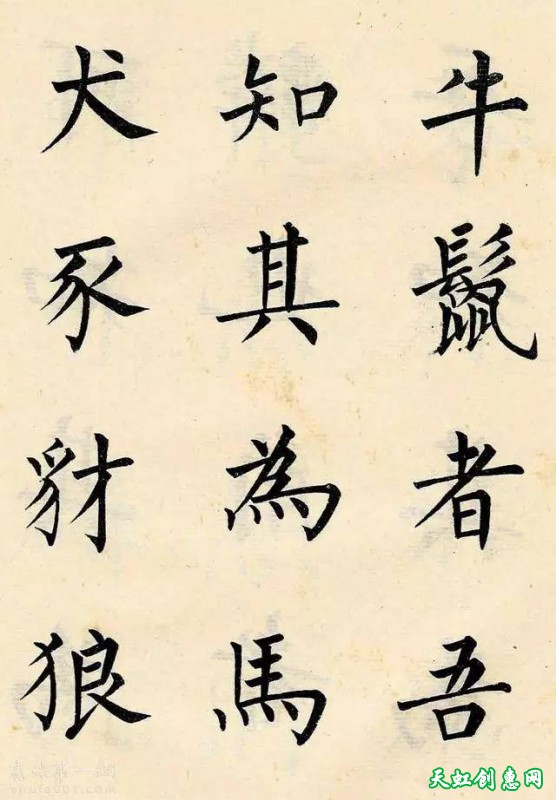 牛鬣者吾
知其為馬
犬豕豺狼
天虹创惠网